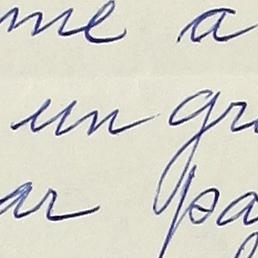 me a
un gr
ar pa